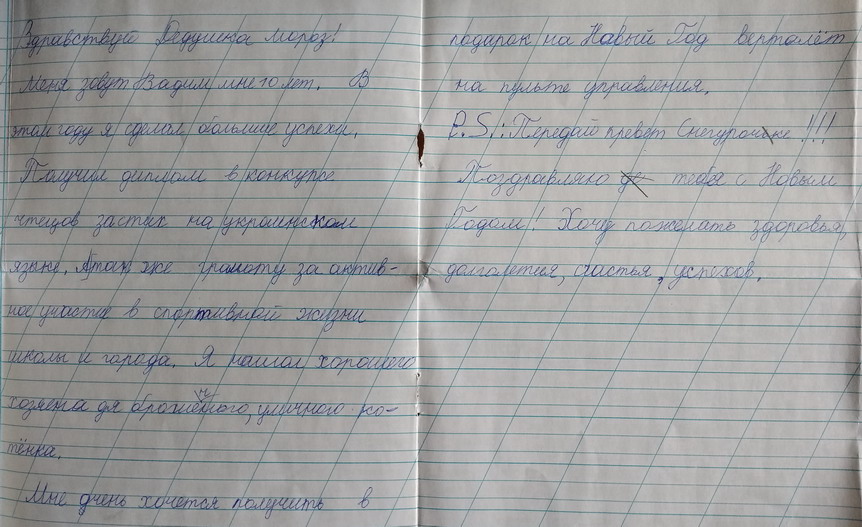 Здравствуй Дедушка мороз!
Меня зовут Вадим мне 10 лет. В
этом году я сделал большие успехи.
Получил диплом в конкурсе
чтецов застих на украинском
языке. А так же грамоту за актив-
ное участие в спортивной жизни
школы и города. Я нашол хорошего
хозяена дя брошенного, уличного ко-
тёнка.
Мне очень хочется получить в
подарок на Новый Год вертолёт
на пульте управления.
P.S.: Передай превет Снегурочке!!!
Поздравляю тебя с Новым
Годом! Хочу пожелать здоровья,
долголетия, счастья, успехов.